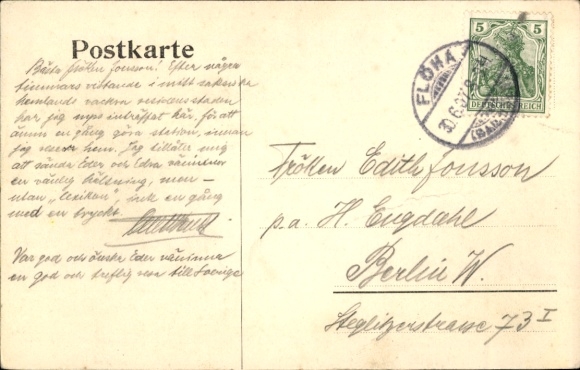 Postkarte
Bästa fröken Jonsson! Efter någon
timmars vistande i mitt
vackra
har jag nyss inträffat här, för att
ännu en gång göra station, innan
jag reser hem. Jag tillåter mig
att sända Eder och Edra väninnor
en vänlig hälsning, men –
utan „lexikon", inte en gång
med en tryckt.
Var god och önska Eder väninna
en god och treflig resa till Sverige
FLÖHA
DEUTSCHES REICH
5 5
Fröken Edith Jonsson
p.a. H. Engdahl
Berlin W.
Steglitzerstrasse 73 I